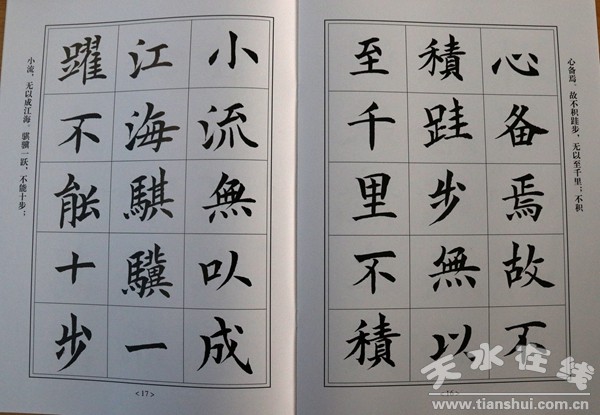 心备焉。故不积跬步，无以至千里；不积
心备焉故不
積跬步無以
至千里不積
<16>
小流無以成
江海騏驥一
躍不能十步
小流，无以成江海。骐骥一跃，不能十步；
<17>
天水在线
www.tianshui.com.cn